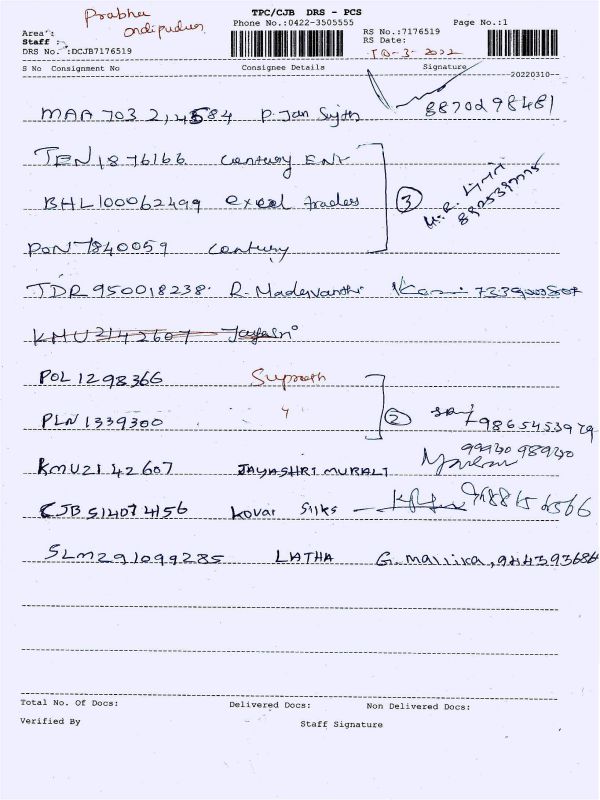 Prabha
TPC/CJB DRS - PCS
Phone No.:0422-3505555
Page No.:1
Area :
Staff :
DRS No. :DCJB7176519
RS No.:7176519
RS Date:
10-3-2022
S No Consignment No Consignee Details Signature
20220310
MAA 703 2,4584 P. Jan Sujith 8870298481
TEN 1876166 Century ENT
BHL100062499 excel traders 3
PON 7840059 Century
TDR 950018238. R. Madeyvanthi
KMU2142607 Jayasri
POL 1298366 Supreeth
PLN 1339300 " 2 9865453979
KMU2142607 JAYASHRI MURALI
CJB 51407 4156 Kovai Silks
SLM291099285 LATHA G. Mallika, 944393686
Total No. Of Docs: Delivered Docs: Non Delivered Docs:
Verified By Staff Signature